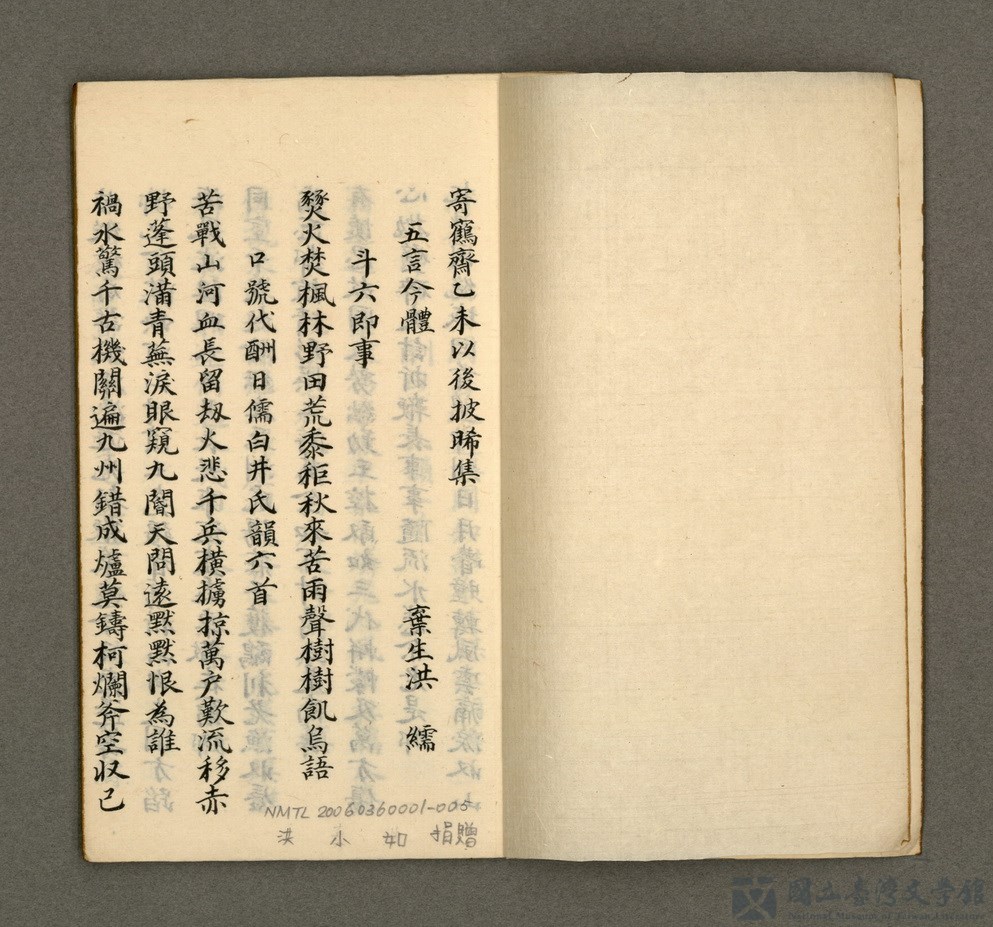 寄鶴齋乙未以後披晞集
五言今體 棄生洪 繻
斗六即事
燹火焚楓林野田荒黍秬秋來苦雨聲樹樹飢烏語
口號代酬日儒白井氏韻六首
苦戰山河血長留劫火悲千兵橫擄掠萬户歎流移赤
野蓬頭滿青蕪淚眼窺九閽天問遠黙黙恨為誰
禍水驚千古機關遍九州錯成爐莫鑄柯爛斧空収已
NMTL 20060360001-005
洪小如捐贈
國立臺灣文學館
National Museum of Taiwan Literature